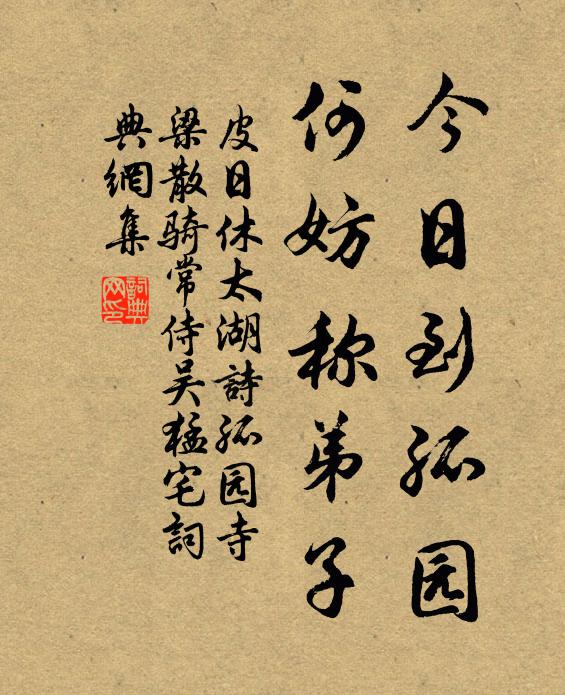 今日到孤园
何妨称弟子
皮日休太湖詩孤园寺
梁散骑常侍吴猛宅詞
典網集
詞典網印